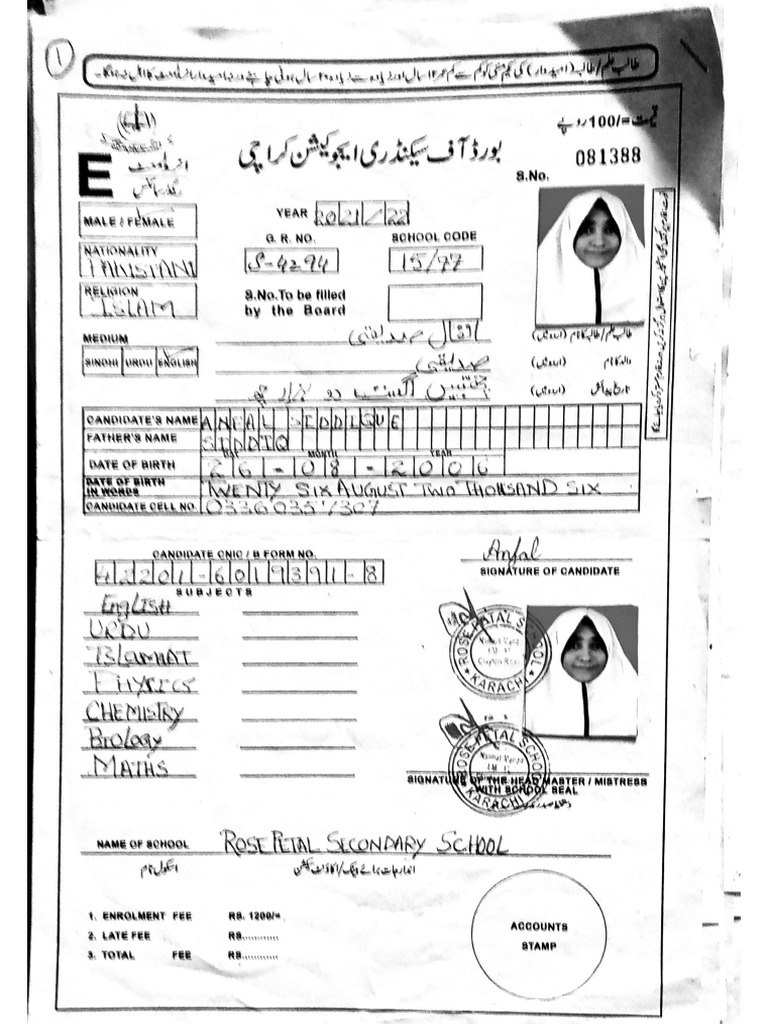 1
طالب علم/طالبہ (امیدوار) کی یکم مئی کو کم سے کم عمر ۱۲ سال اور زیادہ سے زیادہ ۲۰ سال ہونی چاہئے ورنہ امیدوار انرولمنٹ کا اہل نہ ہوگا۔
قیمت =/100 روپے
بورڈ آف سیکنڈری ایجوکیشن کراچی
S.No. 081388
E
انرولمنٹ
MALE / FEMALE
YEAR 2021/22
G. R. NO. S-4294
SCHOOL CODE 15/77
NATIONALITY PAKISTANI
RELIGION ISLAM
S.No.To be filled by the Board
MEDIUM
SINDHI URDU ENGLISH
انفال صدیقی
طالب علم/طالبہ کا نام (اردو میں)
صدیقی
والد کا نام (اردو میں)
چھبیس اگست دو ہزار چھ
تاریخ پیدائش (اردو میں)
CANDIDATE'S NAME ANFAL SIDDIQUE
FATHER'S NAME SIDDIQ
DAY MONTH YEAR
DATE OF BIRTH 26-08-2006
DATE OF BIRTH IN WORDS TWENTY SIX AUGUST TWO THOUSAND SIX
CANDIDATE CELL NO. 03360357307
CANDIDATE CNIC / B FORM NO.
42201-6019391-8
Anfal
SIGNATURE OF CANDIDATE
SUBJECTS
ENGLISH
URDU
ISLAMIAT
PHYSICS
CHEMISTRY
Biology
MATHS
ROSE PETAL SCHOOL
KARACHI
ROSE PETAL SCHOOL
KARACHI
SIGNATURE OF THE HEAD MASTER / MISTRESS
WITH SCHOOL SEAL
NAME OF SCHOOL ROSE PETAL SECONDARY SCHOOL
اسکول کا نام
1. ENROLMENT FEE RS. 1200/=
2. LATE FEE RS............
3. TOTAL FEE RS............
ACCOUNTS
STAMP